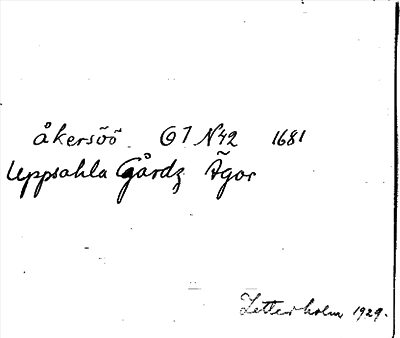 åkersöö G1 N42 1681
Uppsahla Gårdz Ägor
Zetterholm 1929.